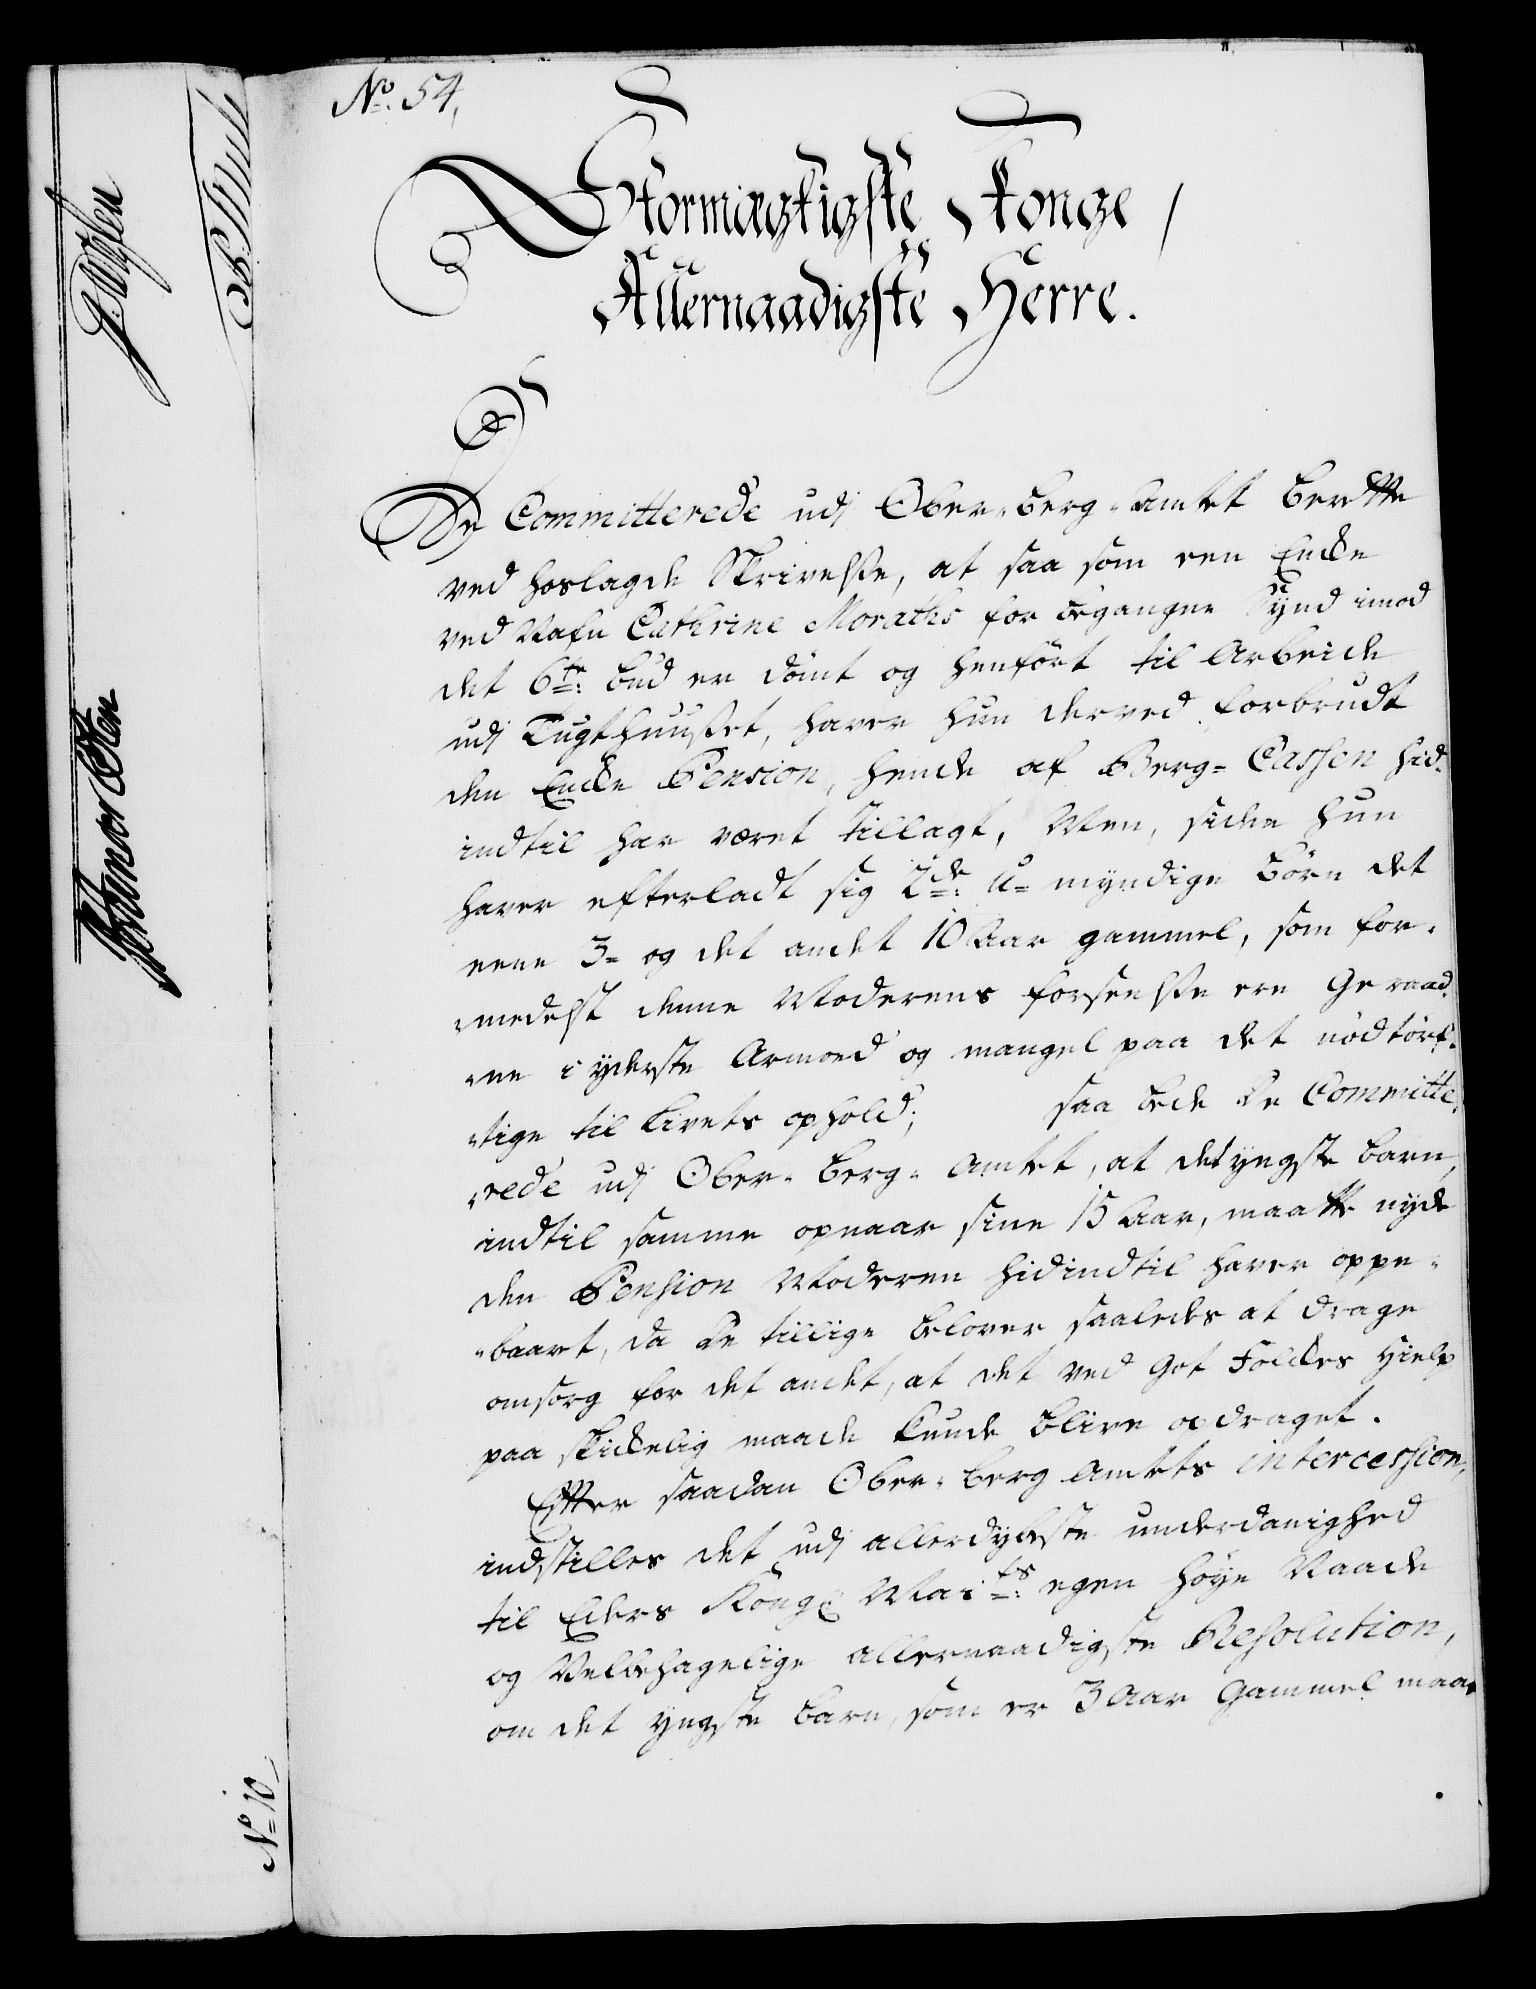 No. 54,
Stormægtigste Konge /
Allernaadigste Herre.
De Committerede udj Ober-Berg-Amtet berette
ved hoslagde Skrivelse, at saa som een Encke
ved Nafn Cathrine Moraths for begangne Synd imod
det 6te: bud er dömt og henfört til Arbeide
udj Tugthuuset, haver hun derved forbrudt
den Encke Pension, hende af Berg-Cassen hid-
indtil har været tillagt, Men, siden hun
haver efterladt sig 2de: U-myndige Börn det
eene 3- og det andet 10 Aar gammel, som for-
-medelst denne Moderens forseelse ere Geraad-
-ne i yderste Armoed og mangel paa det nödtörf-
-tige til Livets ophold; saa bede De Committe-
-rede udj Ober-Berg-Amtet, at det yngste barn,
indtil samme opnaar sine 15 Aar, maatte nyde
den Pension Moderen hidindtil haver oppe-
-baaret, da De tillige belover saaledes at drage
omsorg for det andet, at det ved Got Folckes Hielp
paa skickelig maade kunde blive opdraget.
Efter saadan Ober-Berg Amtets intercession,
indstilles det udj allerdybeste underdanighed
til Eders Kongl Maits: egen höye Naade
og Velbehagelige allernaadigste Resolution,
om det yngste barn, som er 3 Aar Gammel maa
No 10